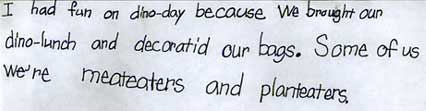 I had fun on dino-day because We brought our
dino-lunch and decoratid our bags. Some of us
We're meateaters and planteaters.